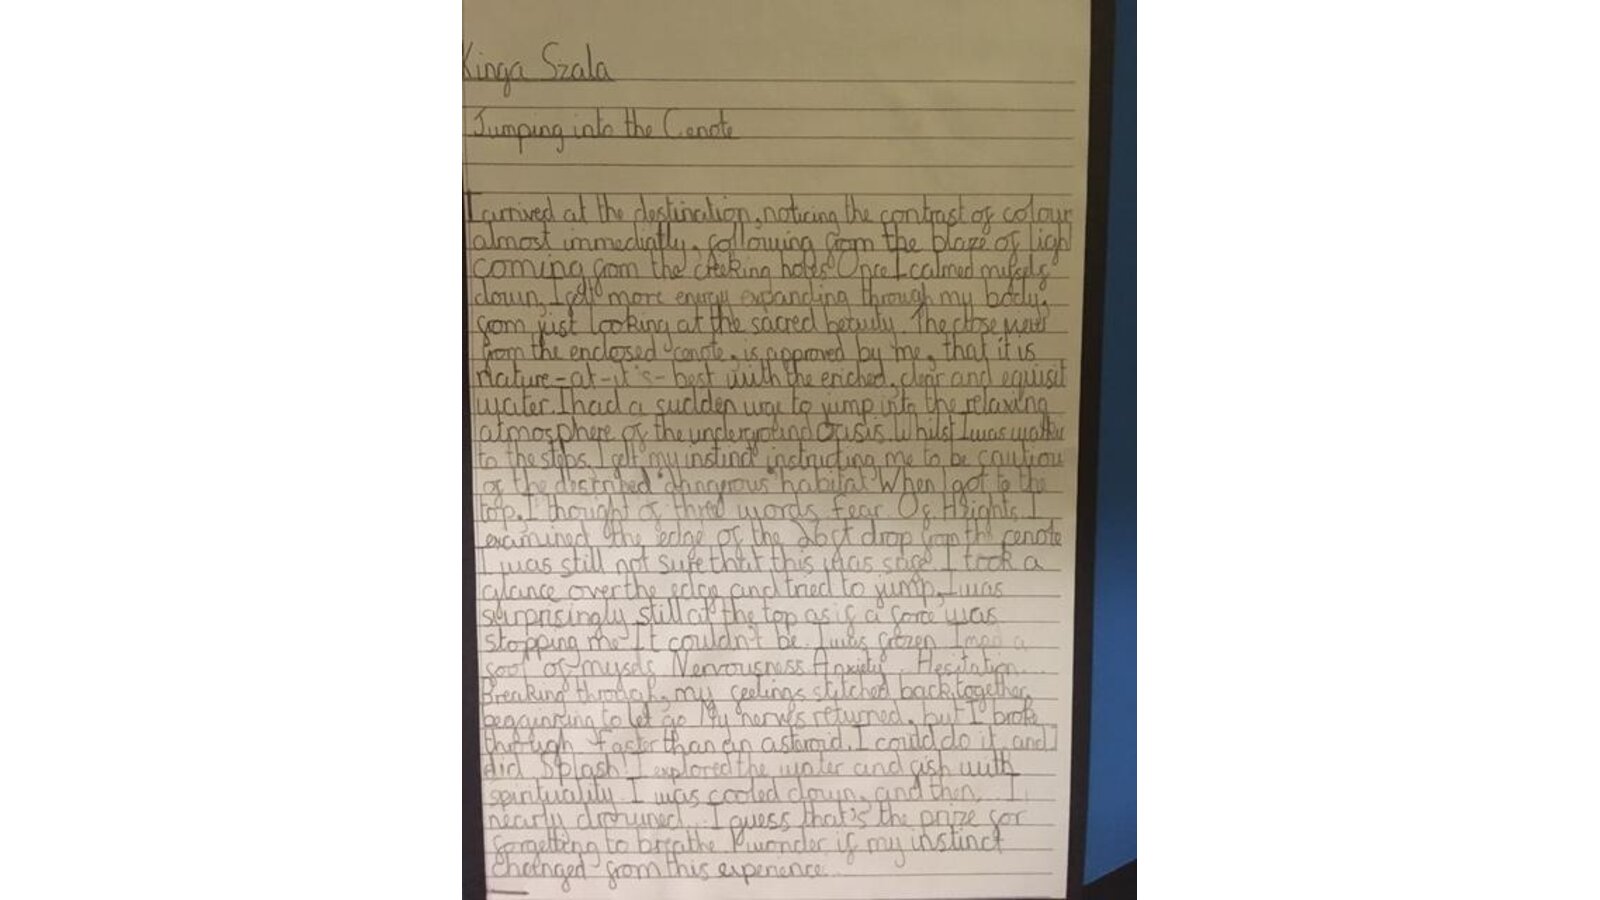 Kinga Szala
Jumping into the Cenote
I arrived at the destination, noticing the contrast of colour
almost immediatly, following from the blaze of ligh
coming from the holes. Once I calmed myself
down, I felt more energy expanding through my body,
from just looking at the sacred beauty. The close view
from the enclosed cenote, is approved by me, that it is
Nature-at-it's-best with the eriched, clear and equisit
water. I had a sudden urge to jump into the relaxing
atmosphere of the underground Oasis. Whilst I was
to the steps, I felt my instinct instructing me to be cautiou
of the "dangerous" habitat. When I got to the
top, I thought of three words. Fear Of Heights. I
examined the edge of the 26ft drop from the cenote
I was still not sure that this was safe. I took a
glance over the edge and tried to jump, I was
surprisingly still at the top as if a force was
stopping me. It couldn't be. I was frozen. I made a
fool of myself. Nervousness. Anxiety. Hesitation...
Breaking through, my feelings stitched back together,
beggining to let go. My nerves returned, but I broke
through faster than an asteroid. I could do it, and I
did. Splash! I explored the water and fish with
spirituality. I was cooled down, and then, I
nearly drowned... I guess that's the prize for
forgetting to breathe. I wonder if my instinct
changed from this experience...